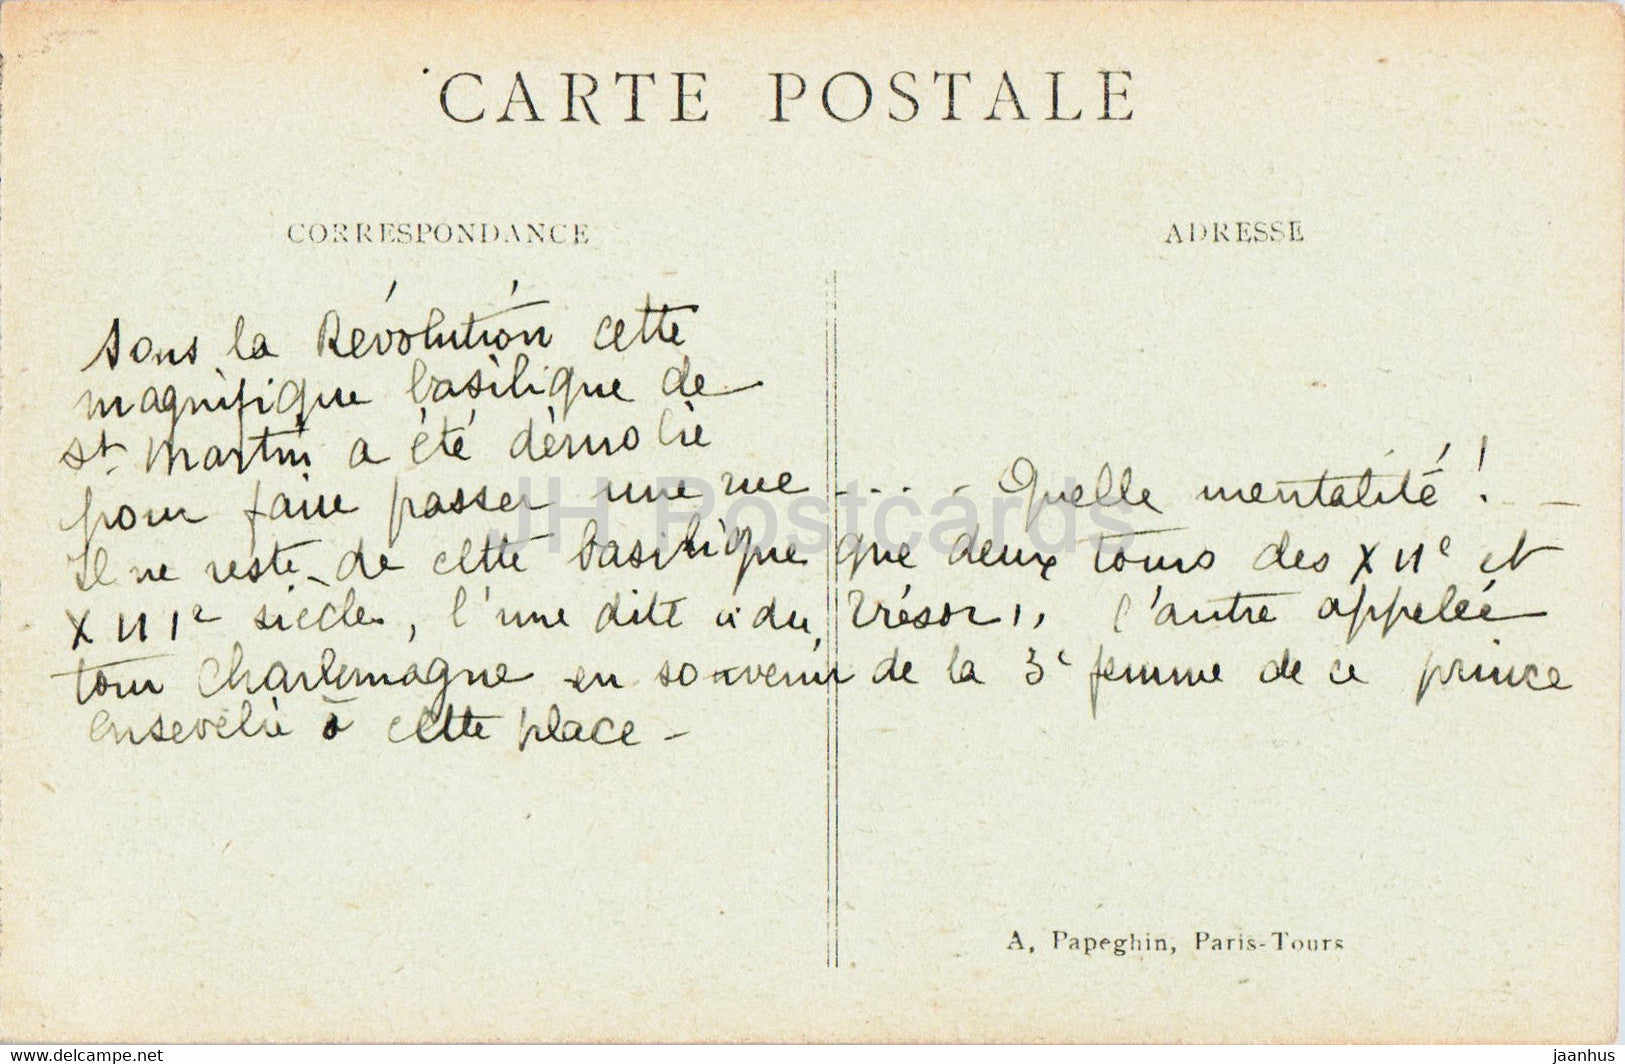 CARTE POSTALE
CORRESPONDANCE
ADRESSE
Sous la Révolution cette
magnifique basilique de
St Martin a été démolie
pour faire passer une rue ..... Quelle mentalité ! _
Il ne reste de cette basilique que deux tours des XIIe et
XIIIe siècles, l'une dite "du Trésor", l'autre appelée
tour Charlemagne en souvenir de la 3e femme de ce prince
ensevelie à cette place -
A. Papeghin, Paris-Tours
JH Postcards
www.delcampe.net
jaanhus